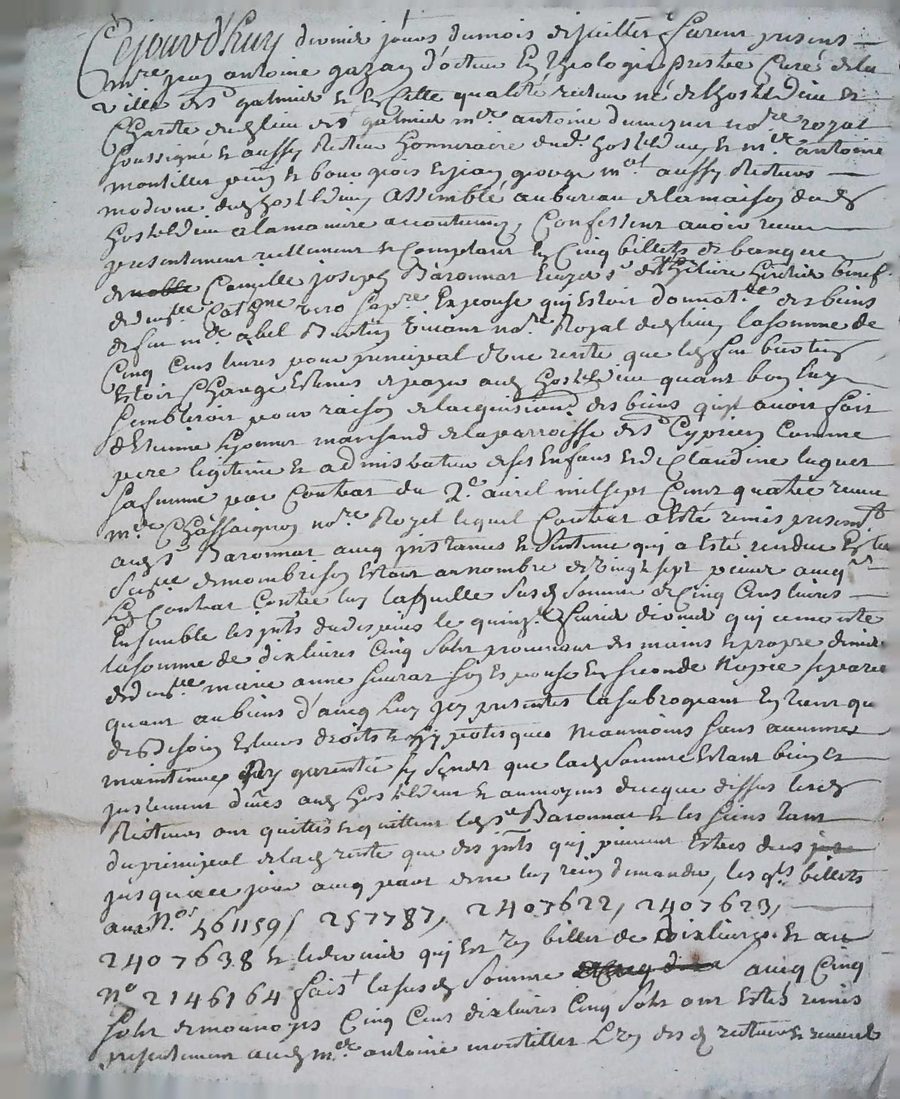 Cejourd'huy dernier jour du mois de juillet furent presens
mre jean antoine gazan docteur En Theologie prestre Curé de la
ville de st galmier et En Cette qualité recteur né de l'hostel Dieu et
Charité du lieu de st galmier mre antoine Dumeynet nore royal
soussigné et aussy Recteur honneraire dud. hostel dieu et mre antoine
montiller et bourgeois et jean george aussy Recteurs
moderne dud hostel Dieu Assemblé au bureau de la maison dud
hostel Dieu a la maniere accoutumé, Confessent avoir receu
presentement reellement et Comptant En Cinq billets de banque
de noble Camille joseph Baronnat Ecuyer sr de st hilaire heritier benef.
de dlle Cathne vero sa Espouse qui Estoit donnatre des biens
de feu me abel Bertin vivant nore Royal dud lieu la somme de
Cinq Cens livres pour principal d'une rente que led feu bertin
Estoit Chargé Et tenus de payer aud hostel Dieu quant bon luy
sembleroit pour raison de l'acquisition des biens qu'il avoit fait
d'Etienne marchand de la parroisse de st Cyprien Comme
pere legitime et administrateur de ses Enfans et de Claudine luquet
sa femme par Contrat du 2e avril mil sept Cens quatre receu
me Chassaignon nore Royal lequel Contrat a Esté remis presentt
aud sr Baronnat avec instances et sentence qui a Esté rendue En la
de montbrison Estant au nombre de vingt sept pieces avec
led Contrat Contre luy laquelle susd somme de Cinq Cens livres
Ensemble les jnts du depuis le quinze fevrier dernier qui remonte
la somme de dix livres Cinq sols provenant des mains et propre denier
de dlle marie anne son Espouse En seconde separée
quant au biens d'avec luy icy presentes la subrogeant En tant que
de Besoin Et leurs droits et hypoteques neanmoins sans aucune
maintenue garentie sy que lad somme Estant bien et
justement dues aud hostel Dieu et au moyens de ce que dessus lesd
Recteurs ont quittés et quittent led sr Baronnat et les siens tant
du principal de lad rente que des jnts qui peuvent Estres deus
jusqu'a ce jour avec pact de ne luy rien demander, les qls billets
aux Nos 461159, 257787, 2407622, 2407623,
2407638 et le dernier qui Est un billet de Dix livres et au
No 2146164 faist la susd somme avecq Cinq
sols de monnoyes Cinq Cens dix livres Cinq sols ont Estés remis
presentement aud me antoine montiller L'un des d recteurs et